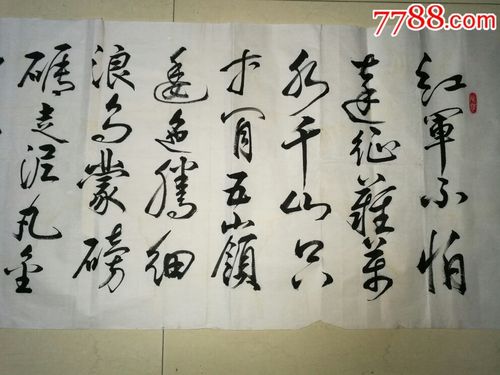 7788.com
红軍不怕
遠征難萬
水千山只
等闲五嶺
逶迤腾细
浪乌蒙磅
礴走泥丸金